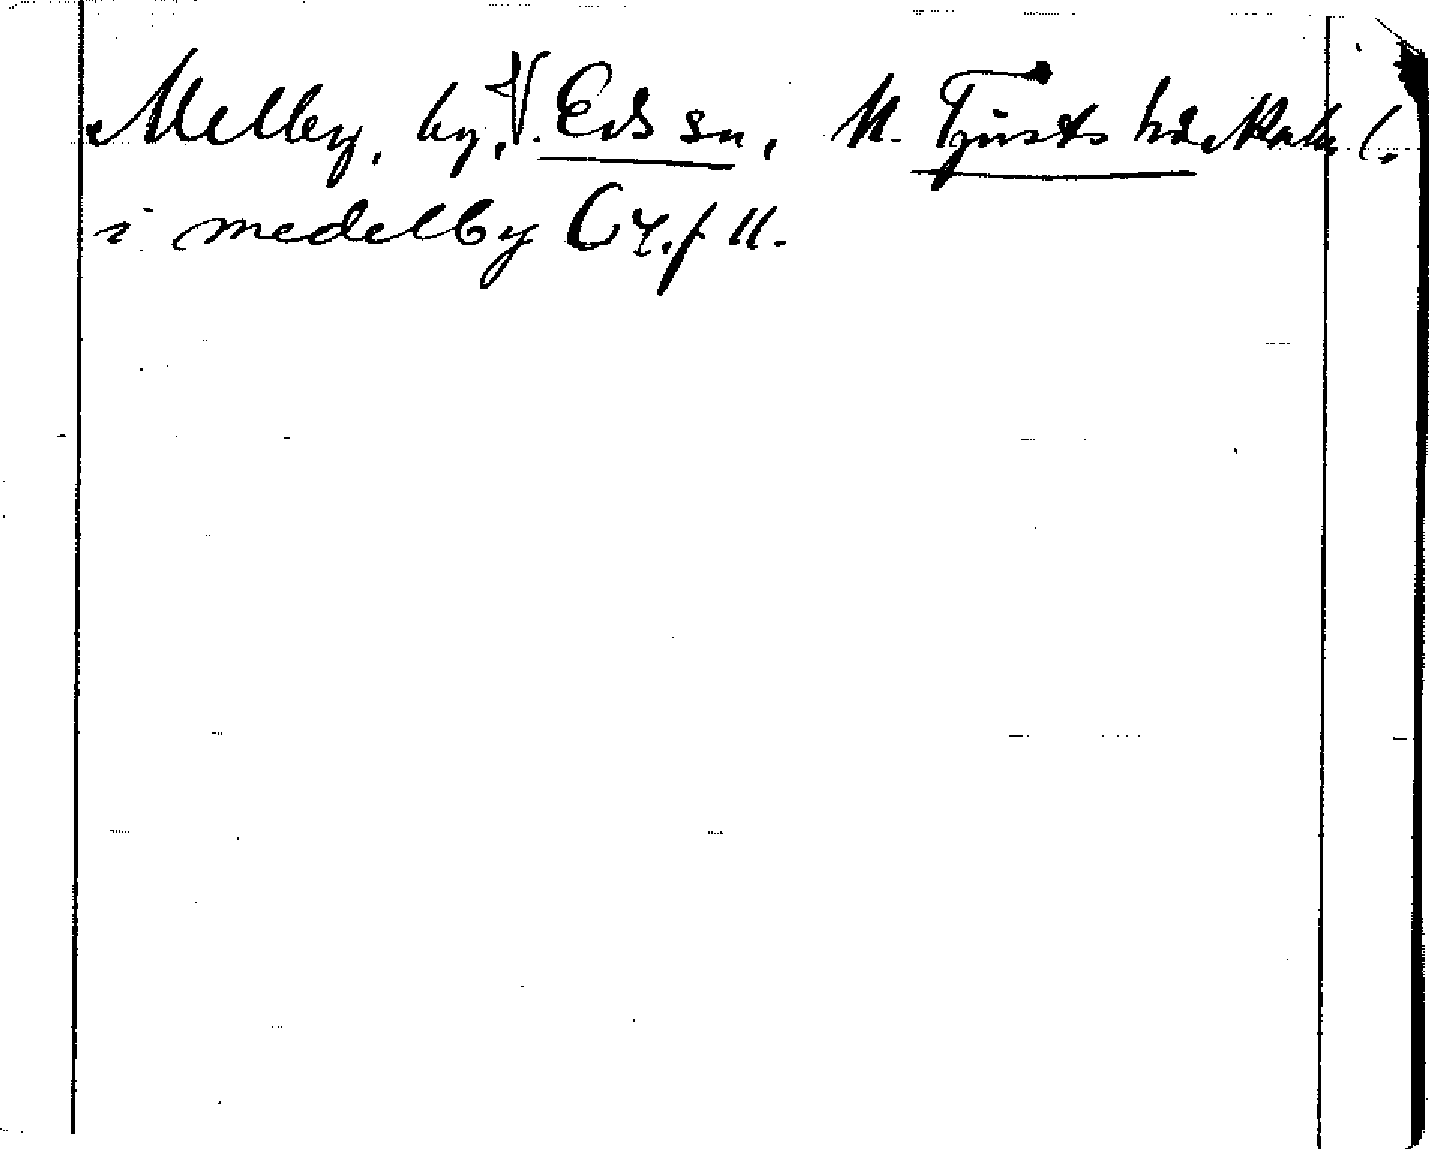 Melby, by, V. Eds sn, N. Tjusts hd Kalm l.
i medelby C 4. f 11.